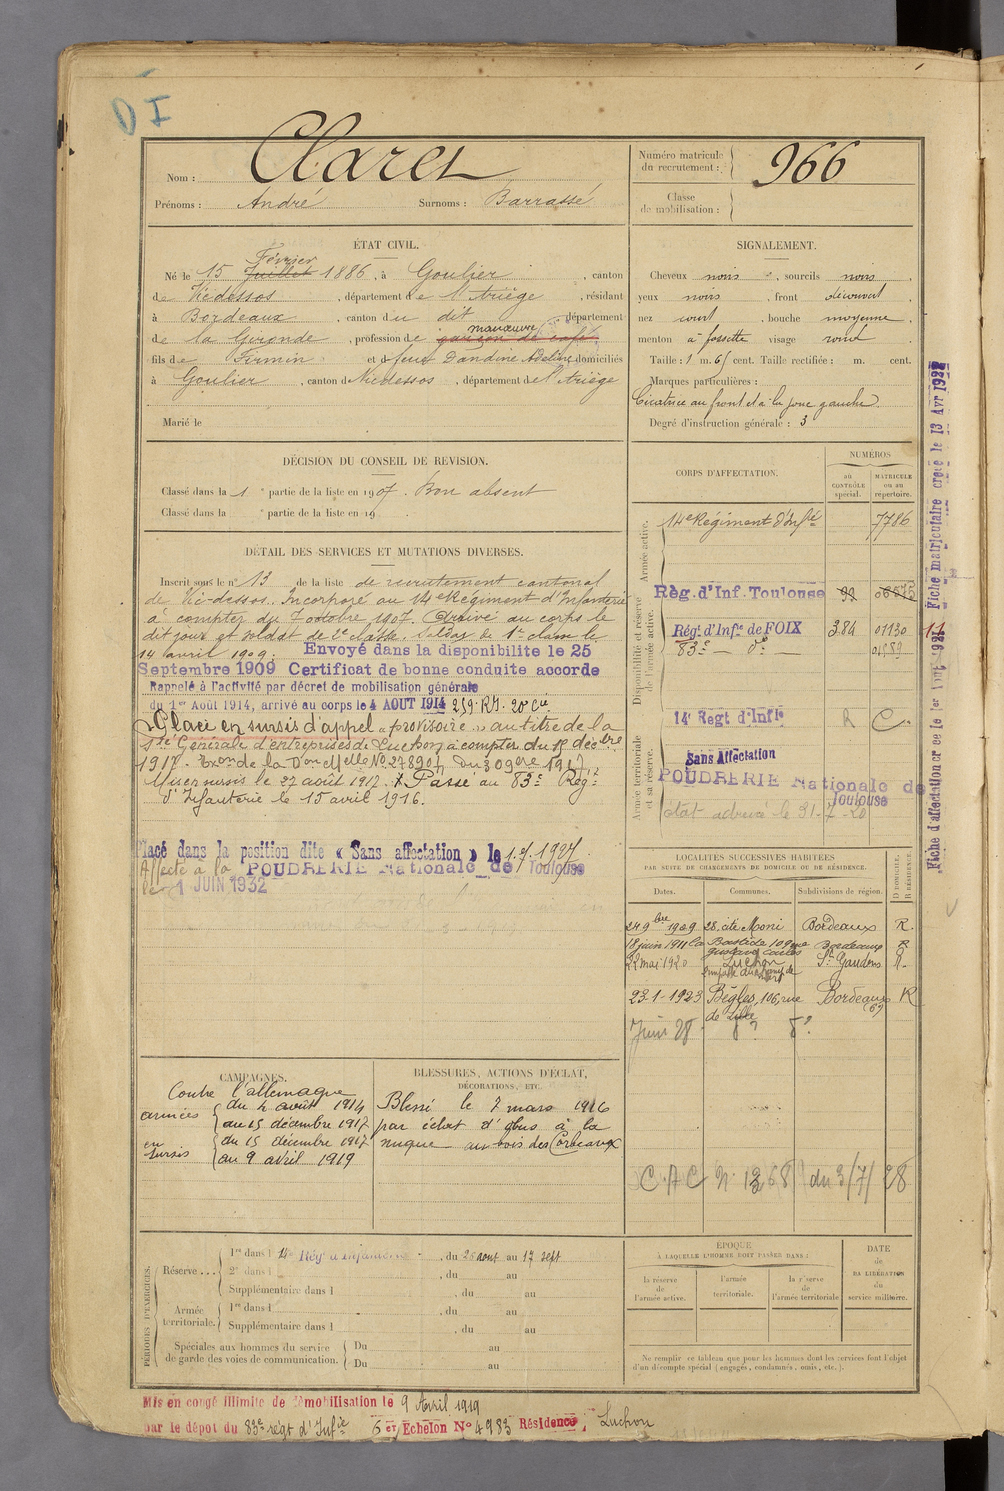 DI
Nom : Claret
Prénoms : André Surnoms : Barrassé
Numéro matricule du recrutement : 966
Classe de mobilisation :
ÉTAT CIVIL.
Février
Né le 15 Juillet 1886, à Goulier, canton
de Vicdessos, département de l'Ariège, résidant
à Bordeaux, canton du dit, département
manœuvre
de la Gironde, profession de garçon de café
fils de Firmin et de feue Dandine Adeline domiciliés
à Goulier, canton de Vicdessos, département de l'Ariège
Marié le
SIGNALEMENT.
Cheveux noirs, sourcils noirs
yeux noirs, front découvert
nez court, bouche moyenne
menton à fossette visage rond
Taille : 1 m. 65 cent. Taille rectifiée : m. cent.
Marques particulières :
Cicatrice au front et à la joue gauche.
Degré d'instruction générale : 3
DÉCISION DU CONSEIL DE REVISION.
Classé dans la 1e partie de la liste en 1907. Bon absent
Classé dans la e partie de la liste en 19
DÉTAIL DES SERVICES ET MUTATIONS DIVERSES.
Inscrit sous le n° 13 de la liste de recrutement cantonal
de Vic-dessos. Incorporé au 14e Régiment d'Infanterie
à compter du 7 octobre 1907. Arrivé au corps le
dit jour et soldat de 2e classe. Soldat de 1re classe le
14 avril 1909. Envoyé dans la disponibilite le 25
Septembre 1909 Certificat de bonne conduite accorde
Rappelé à l'activité par décret de mobilisation générale
du 1er Août 1914, arrivé au corps le 4 AOUT 1914 259 RI. 20e Cie
Placé en sursis d'appel "provisoire" au titre de la
Sté Générale d'entreprises de Luchon à compter du 15 décbre
1917. de la Don Mlle No 27890 du 30 9bre 1917.
le 27 août 1917. Passé au 83e Rég.
d'Infanterie le 15 avril 1916.
Placé dans la position dite « Sans affectation » le 1.7.1927.
Affecté à la POUDRERIE Nationale de Toulouse
le 1 JUIN 1932
CORPS D'AFFECTATION.
NUMÉROS
au CONTRÔLE spécial.
MATRICULE ou au répertoire.
Armée active.
14e Régiment d'Infie 7786
Disponibilité et réserve de l'armée active.
Rég. d'Inf. Toulouse 99
Régt d'Infie de FOIX 384 01130
83e — do —
Armée territoriale et sa réserve.
14e Regt d'Infie R C.
Sans Affectation
POUDRERIE Nationale de
Toulouse
état adressé le 31-7-20
Fiche d'affectation
Fiche matriculaire créée le 13 Avr
LOCALITÉS SUCCESSIVES HABITÉES
PAR SUITE DE CHANGEMENTS DE DOMICILE OU DE RÉSIDENCE.
Dates. Communes. Subdivisions de région. D DOMICILE. R RÉSIDENCE.
24 9bre 1909 28, cité Moni Bordeaux R.
18 juin 1911 la Bastide 109 rue Bordeaux R
22 mai 1920 Luchon St Gaudens R.
23-1-1923 Bègles, 106, rue de Lille Bordeaux R
Juin 28 do do
CAC N° 1368 du 3/7/28
CAMPAGNES.
Contre l'allemagne
armées du 4 août 1914
au 15 décembre 1917
en sursis du 15 décembre 1917
au 9 avril 1919
BLESSURES, ACTIONS D'ÉCLAT,
DÉCORATIONS, ETC.
Blessé le 7 mars 1916
par éclat d'obus à la
nuque au bois des Corbeaux
PÉRIODES D'EXERCICES.
Réserve ... 1re dans l 14e Régt d'Infanterie, du 26 aout au 17 sept
2e dans l , du au
Supplémentaire dans l du au
Armée territoriale. 1re dans l , du au
Supplémentaire dans l , du au
Spéciales aux hommes du service de garde des voies de communication. Du au
Du au
ÉPOQUE
À LAQUELLE L'HOMME DOIT PASSER DANS :
la réserve de l'armée active.
l'armée territoriale.
la réserve de l'armée territoriale
DATE de SA LIBÉRATION du service militaire.
Ne remplir ce tableau que pour les hommes dont les services font l'objet
d'un décompte spécial (engagés, condamnés, omis, etc.).
Mis en congé illimité de démobilisation le 9 Avril 1919
par le dépôt du 83e régt d'Infie 6 er Echelon N° 4983 Résidence Luchon